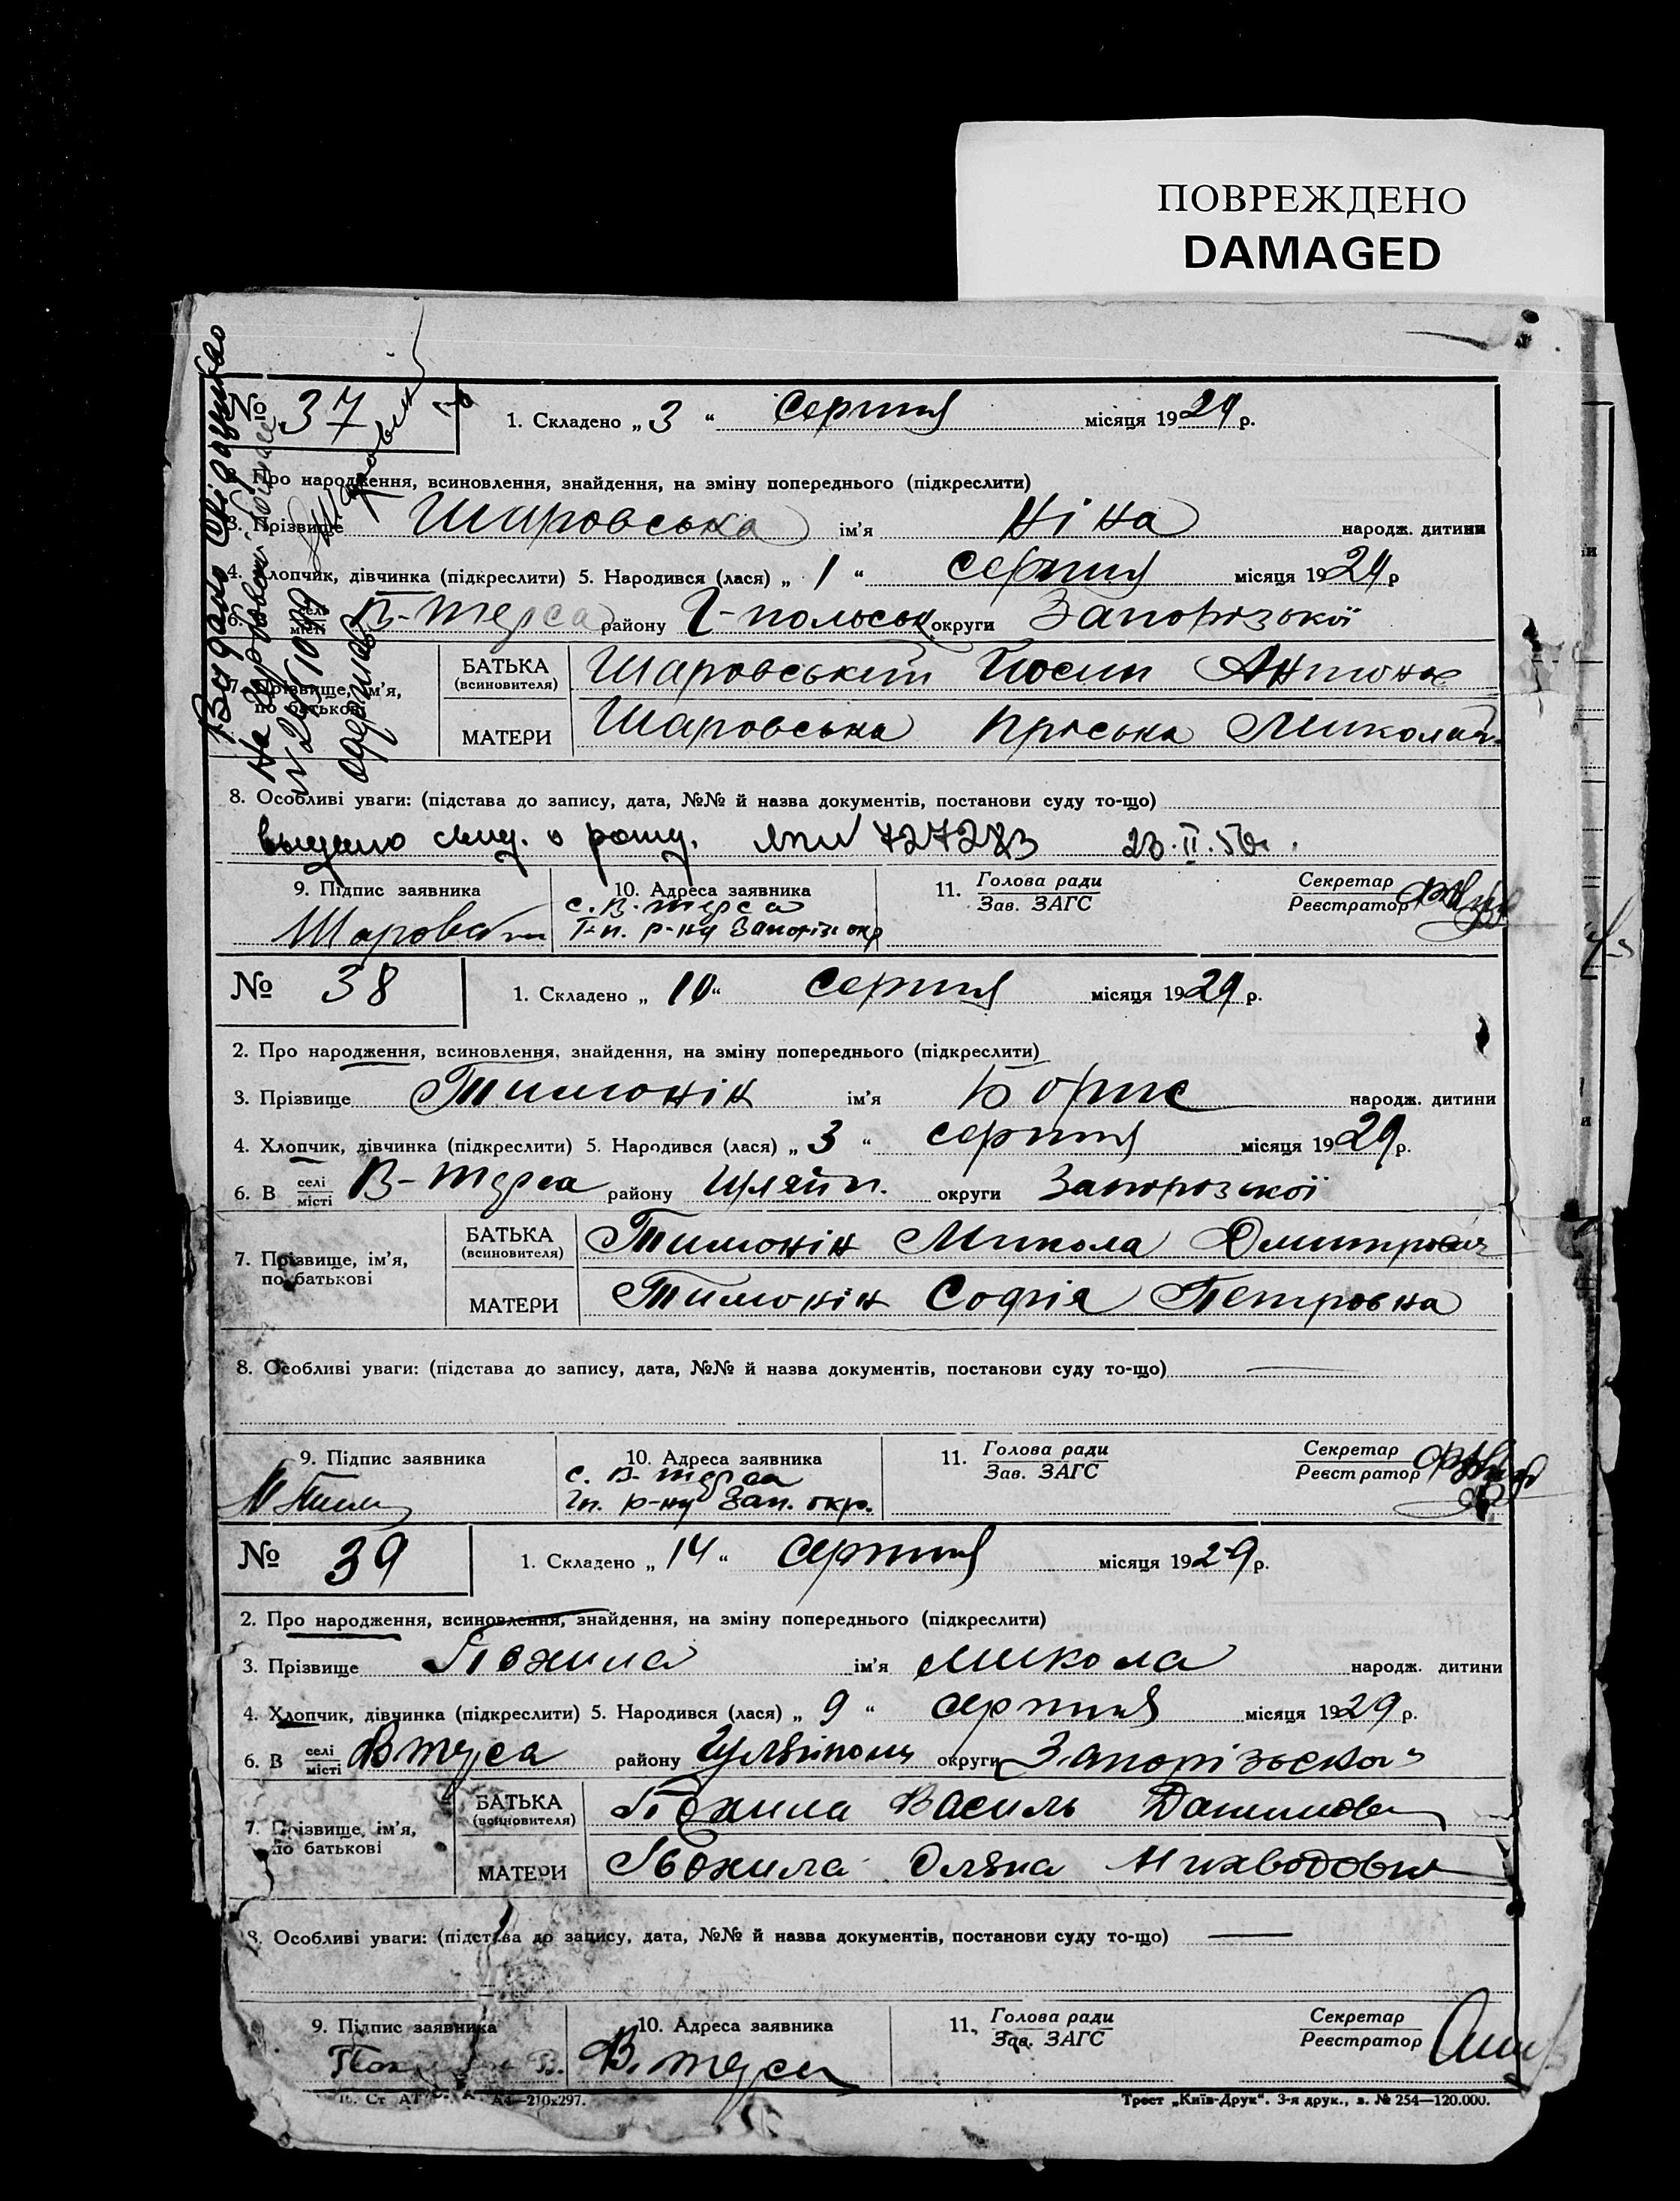 ПОВРЕЖДЕНО
DAMAGED
№ 37
1. Складено „ 3 “ Серпня місяця 1929 р.
Про народження, всиновлення, знайдення, на зміну попереднього (підкреслити)
3. Прізвище Шаровська ім'я Ніна народж. дитини
4. Хлопчик, дівчинка (підкреслити) 5. Народився (лася) „ 1 “ серпня місяця 1929 р
6. селі місті В-Терса району Г-польськ округи Запорізької
7. Прізвище, ім'я, по батькові
БАТЬКА (всиновителя) Шаровський Йосип Антонов
МАТЕРИ Шаровська Пріська Миколаїв.
8. Особливі уваги: (підстава до запису, дата, №№ й назва документів, постанови суду то-що)
выдано свид. о рожд. 727283 23.II.50г.
9. Підпис заявника
10. Адреса заявника
11. Голова ради Зав. ЗАГС
Секретар Реєстратор
с. В. Терса
Г-п. р-ну Запоріз окр
Видано свідоцтво
№ 38
1. Складено „ 10 “ Серпня місяця 1929 р.
2. Про народження, всиновлення, знайдення, на зміну попереднього (підкреслити)
3. Прізвище Тимонін ім'я Борис народж. дитини
4. Хлопчик, дівчинка (підкреслити) 5. Народився (лася) „ 3 “ серпня місяця 1929 р.
6. В селі місті В-Терса району Гуляйп. округи Запорозької
7. Прізвище, ім'я, по батькові
БАТЬКА (всиновителя) Тимонін Микола Дмитрович
МАТЕРИ Тимонін Софія Петровна
8. Особливі уваги: (підстава до запису, дата, №№ й назва документів, постанови суду то-що)
9. Підпис заявника
10. Адреса заявника
11. Голова ради Зав. ЗАГС
Секретар Реєстратор
с. В-Терса
Гп. р-ну Зап. окр.
№ 39
1. Складено „ 14 “ серпня місяця 1929 р.
2. Про народження, всиновлення, знайдення, на зміну попереднього (підкреслити)
3. Прізвище ім'я Микола народж. дитини
4. Хлопчик, дівчинка (підкреслити) 5. Народився (лася) „ 9 “ серпня місяця 1929 р.
6. В селі місті В терса району Гуляйполь округи Запорізьской
7. Прізвище, ім'я, по батькові
БАТЬКА (всиновителя) Василь
МАТЕРИ Оляна
8. Особливі уваги: (підстава до запису, дата, №№ й назва документів, постанови суду то-що)
9. Підпис заявника
10. Адреса заявника
11. Голова ради Зав. ЗАГС
Секретар Реєстратор
В. терса
А4—210х297.
Трест „Київ-Друк“. 3-я друк., з. № 254—120.000.